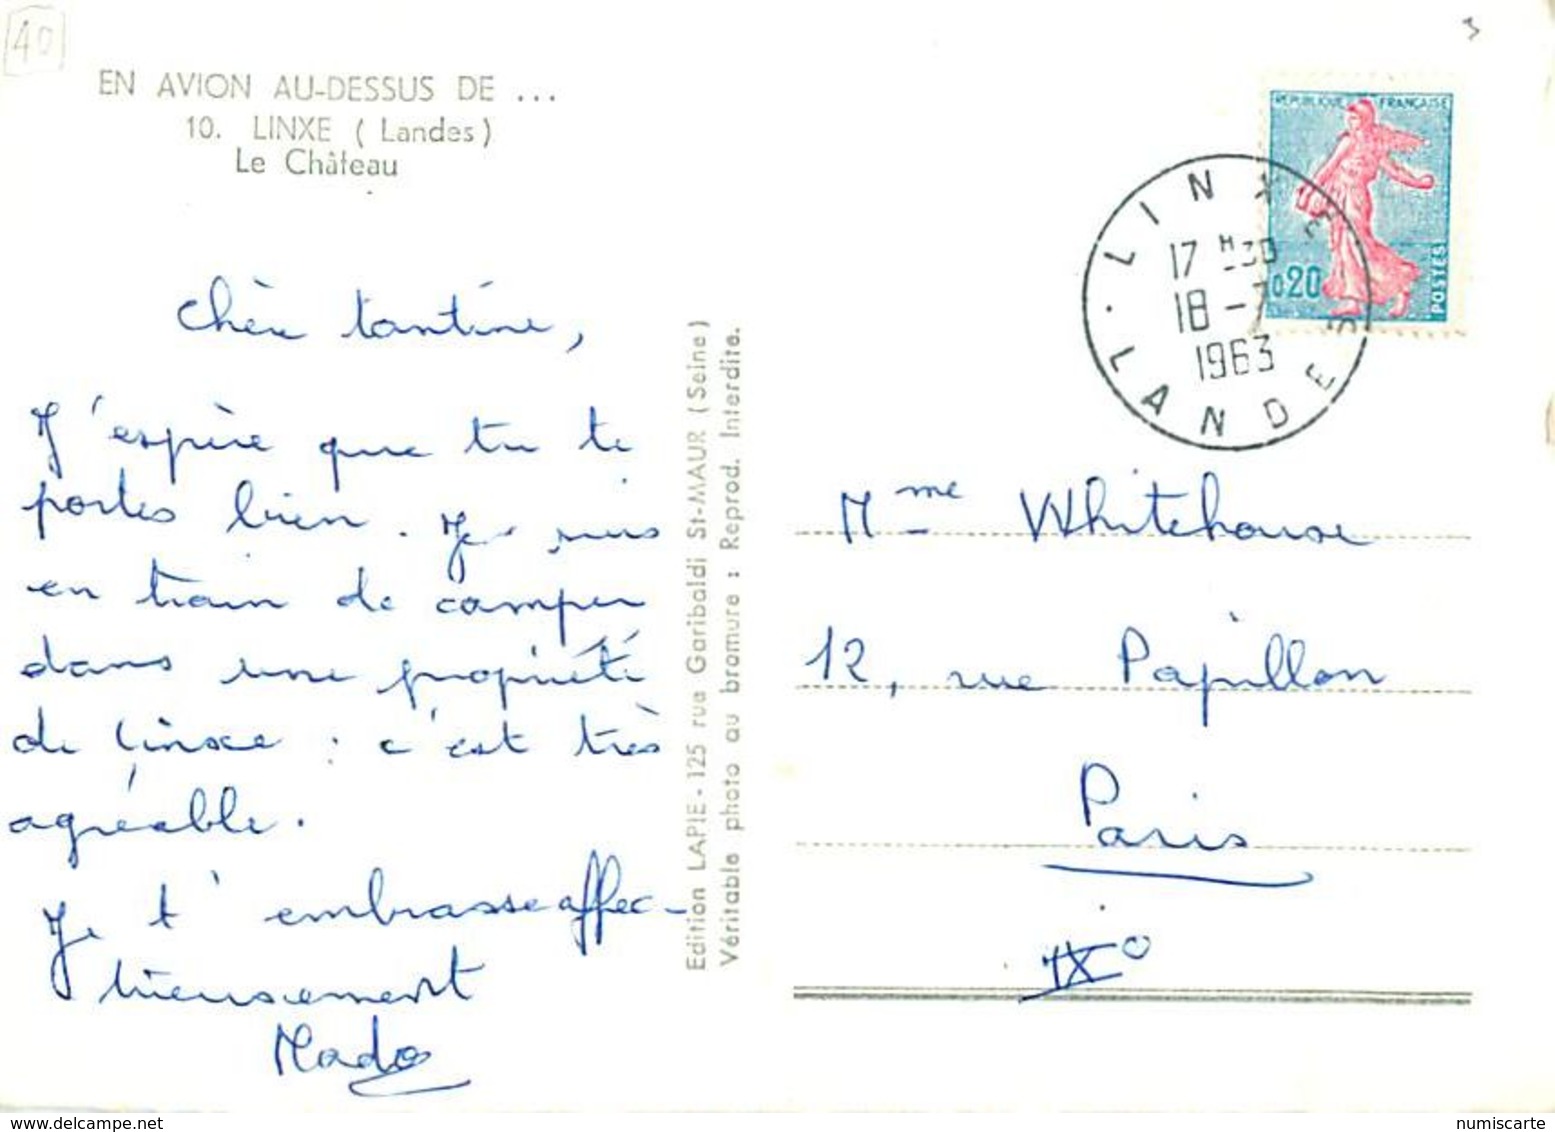 40
EN AVION AU-DESSUS DE ...
10. LINXE ( Landes )
Le Château
Chère tantine,
J'espère que tu te
portes bien. Je suis
en train de camper
dans une propriété
de Linxe : c'est très
agréable.
Je t'embrasse affec-
tueusement
Mado
Edition LAPIE - 125 rue Garibaldi St-MAUR (Seine)
Véritable photo au bromure : Reprod. Interdite.
REPUBLIQUE FRANÇAISE
0,20
POSTES
LINXE
17 H 30
18 - 7
1963
LANDES
Mme Whitehouse
12, rue Papillon
Paris
IXº
www.delcampe.net
numiscarte